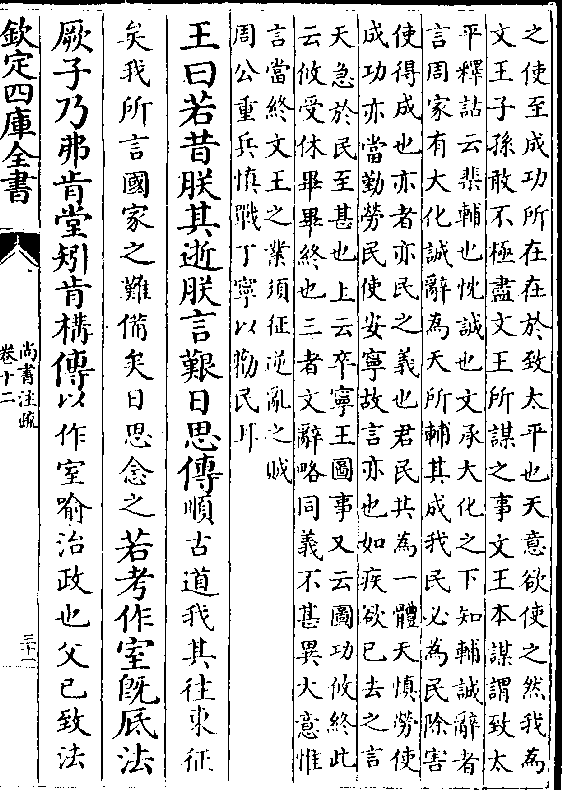 之使至成功所在在於致太平也天意欲使之然我為
文王子孫敢不極盡文王所謀之事文王本謀謂致太
平釋詁云棐輔也忱誠也文承大化之下知輔誠辭者
言周家有大化誠辭為天所輔其成我民必為民除害
使得成也亦者亦民之義也君民共為一體天慎勞使
成功亦當勤勞民使安寧故言亦也如疾欲已去之言
天急於民至甚也上云卒寧王圖事又云圖功攸終此
云攸受休畢畢終也三者文辭略同義不甚異大意惟
言當終文王之業須征逆亂之賊
周公重兵慎戰丁寧以勸民耳
王曰若昔朕其逝朕言艱日思傳順古道我其往東征
矣我所言國家之難備矣日思念之若考作室既厎法
厥子乃弗肯堂矧肯構傳以作室喻治政也父已致法
欽定四庫全書
尚書注疏
卷十二
三十一